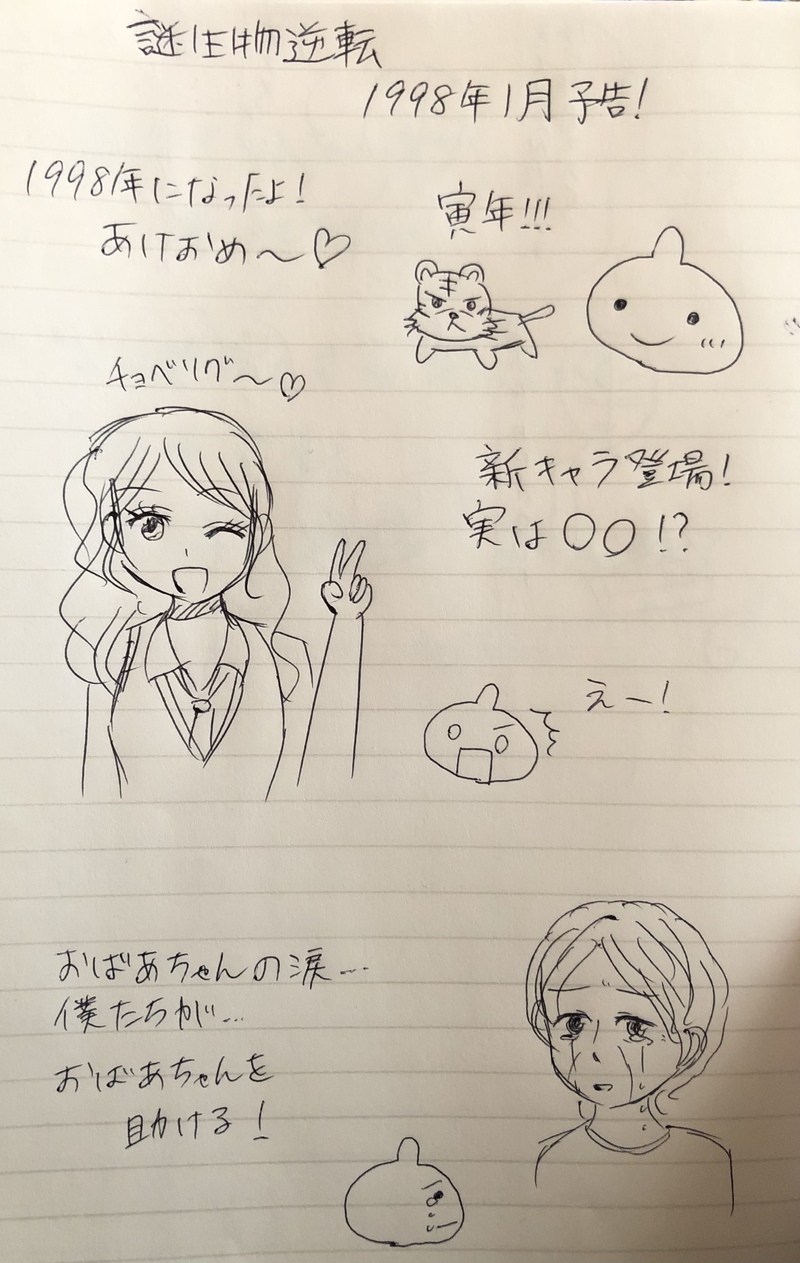 謎生物逆転
1998年1月予告!
1998年になったよ!
あけおめ〜♡
寅年!!!
チョベリグ〜♡
新キャラ登場!
実は○○!?
えー!
おばあちゃんの涙…
僕たちが…
おばあちゃんを
助ける!